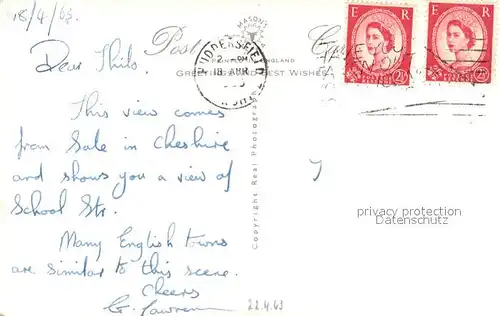 18/4/63.
Post
MASON'S
PRINTED IN ENGLAND
GREETINGS BEST WISHES
HUDDERSFIELD
2 - PM
18 APR
E R
E R
2½
2½
Dear Thilo.
This view comes
from Sale in Cheshire
and shows you a view of
School Str.
Many English towns
are similar to this scene.
Cheers
G.
22.4.63
Copyright Real Photograph
privacy protection
oldthing.com